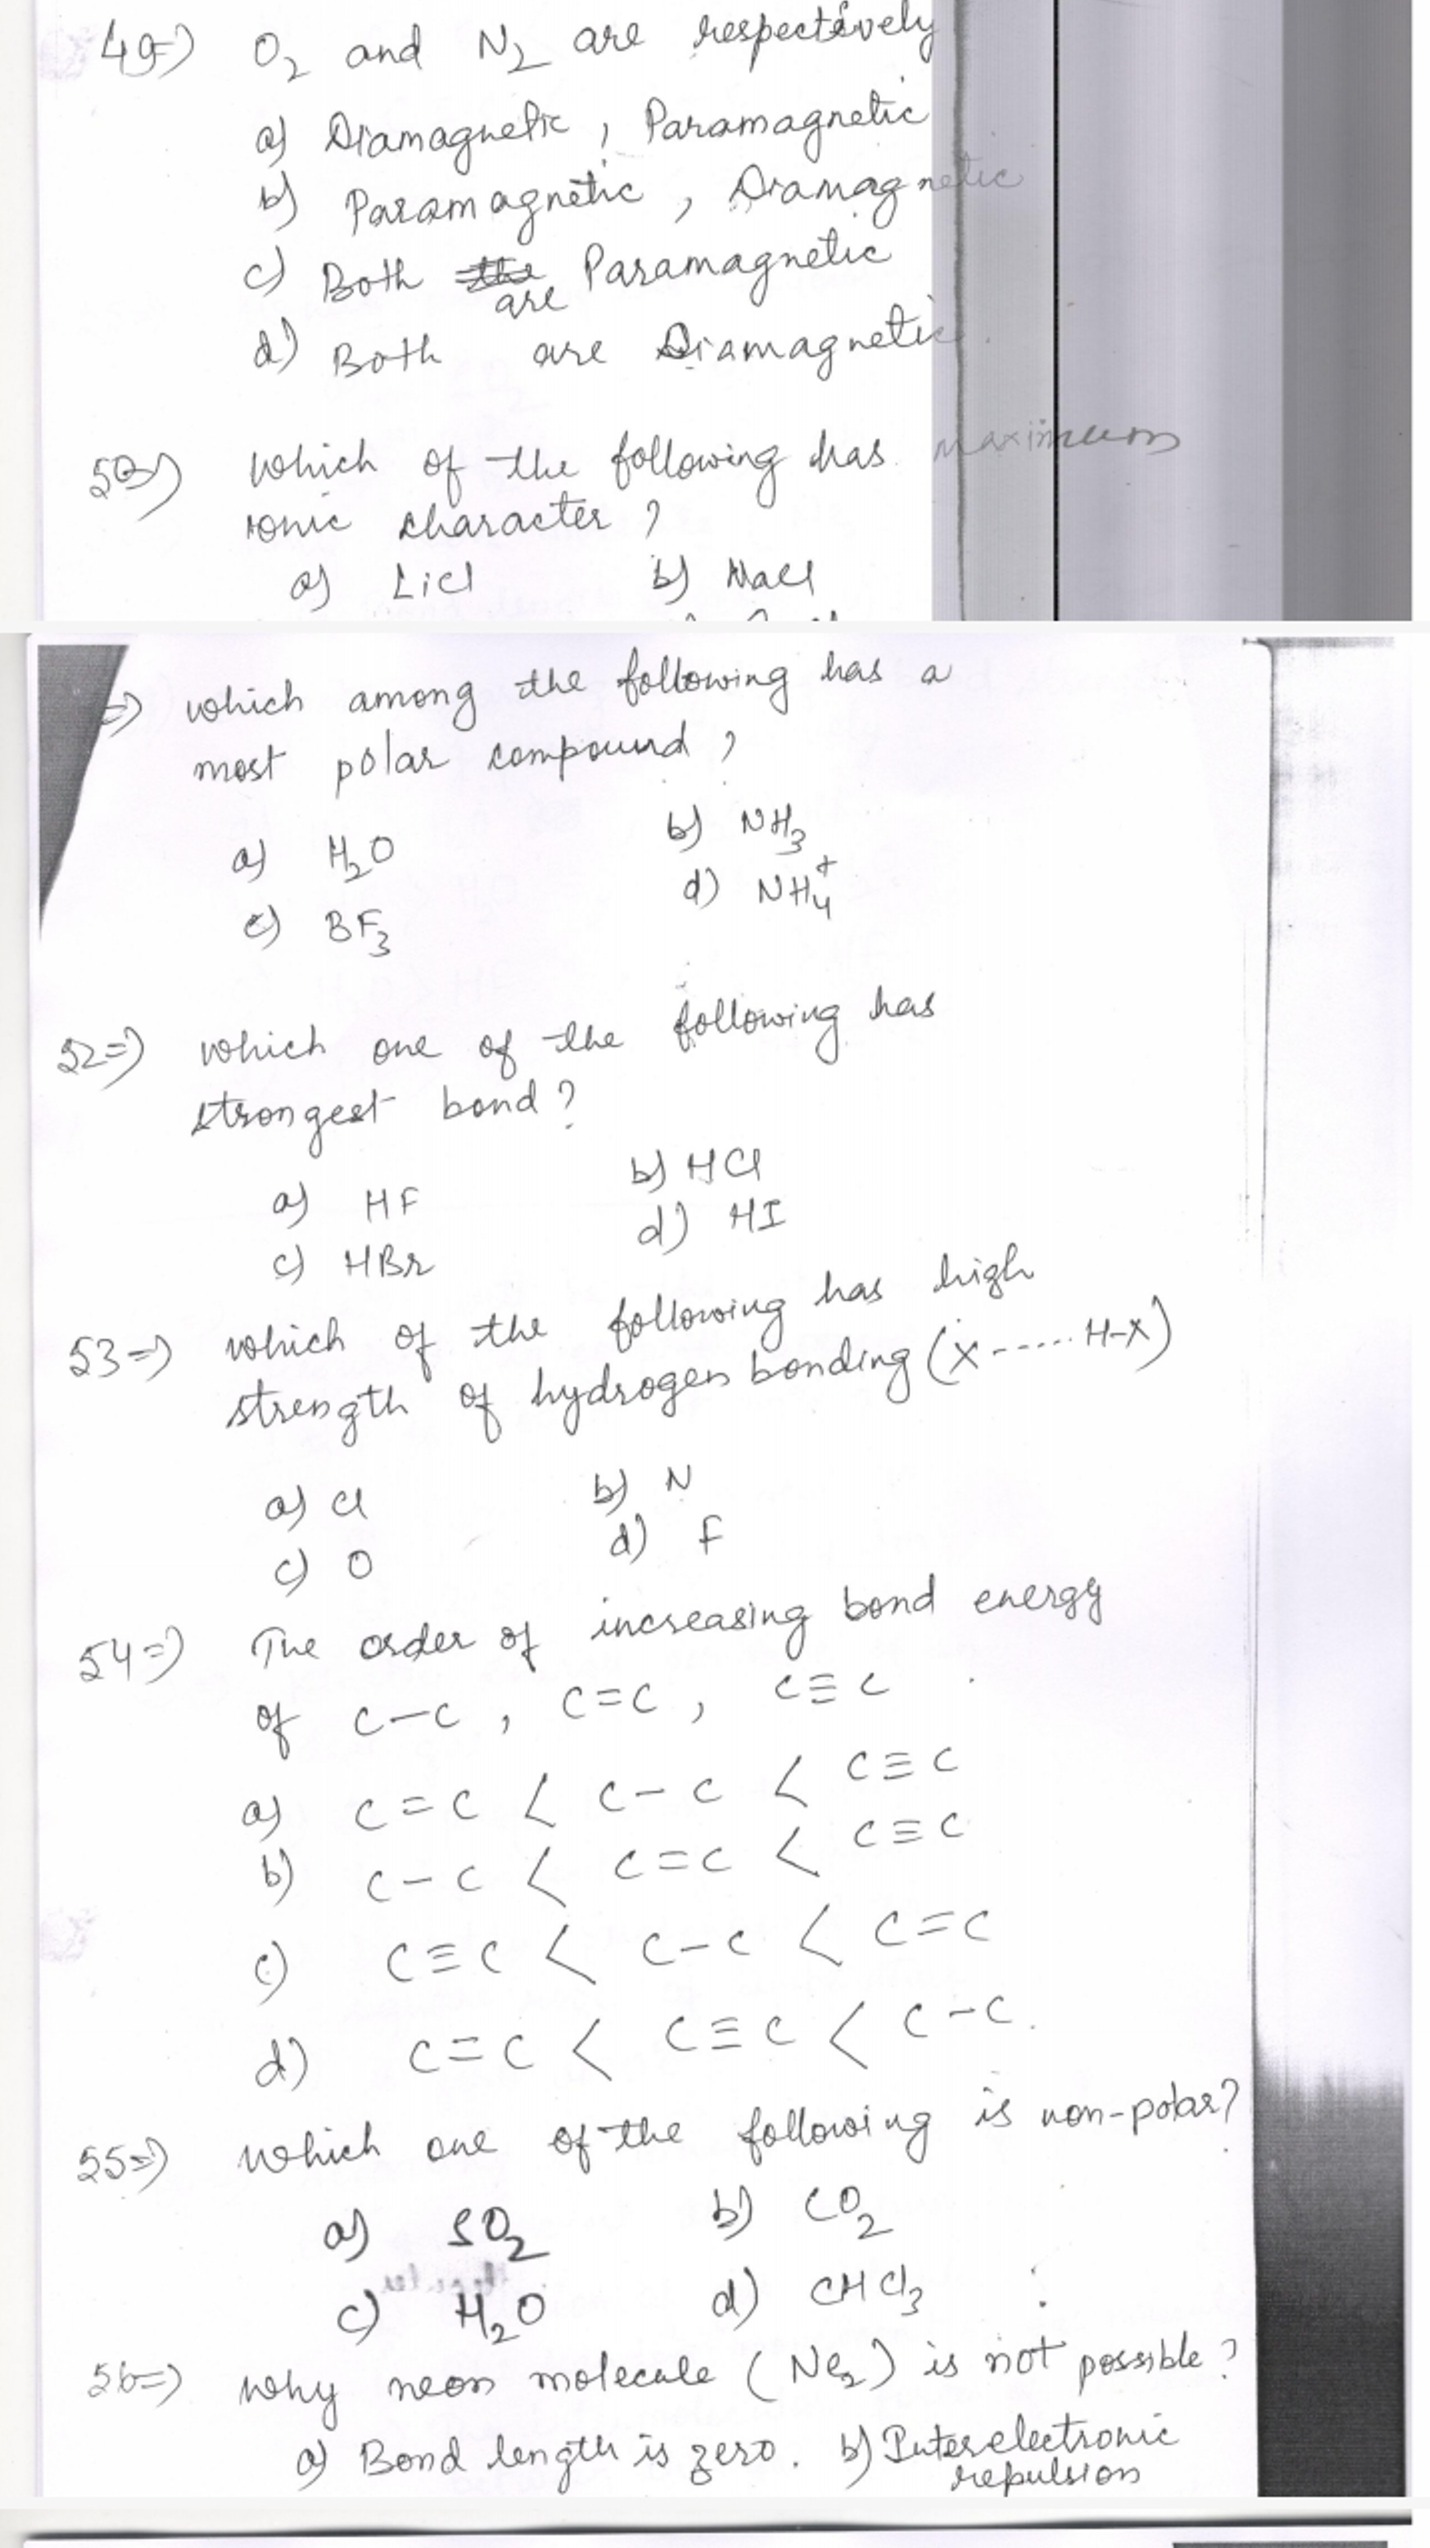 49=) O2 and N2 are respectively
a) Diamagnetic, Paramagnetic
b) Paramagnetic, Diamagnetic
c) Both are Paramagnetic
d) Both are Diamagnetic.
50=) which of the following has maximum
ionic character?
a) LiCl b) NaCl
=) which among the following has a
most polar compound?
a) H2O b) NH3
c) BF3 d) NH4+
52=) which one of the following has
strongest bond?
a) HF b) HCl
c) HBr d) HI
53=) which of the following has high
strength of hydrogen bonding (X-----H-X)
a) Cl b) N
c) O d) F
54=) The order of increasing bond energy
of C-C, C=C, C≡C
a) C=C < C-C < C≡C
b) C-C < C=C < C≡C
c) C≡C < C-C < C=C
d) C=C < C≡C < C-C.
55=) which one of the following is non-polar?
a) SO2 b) CO2
c) H2O d) CHCl3
56=) why neon molecule (Ne2) is not possible?
a) Bond length is zero. b) Interelectronic
repulsion